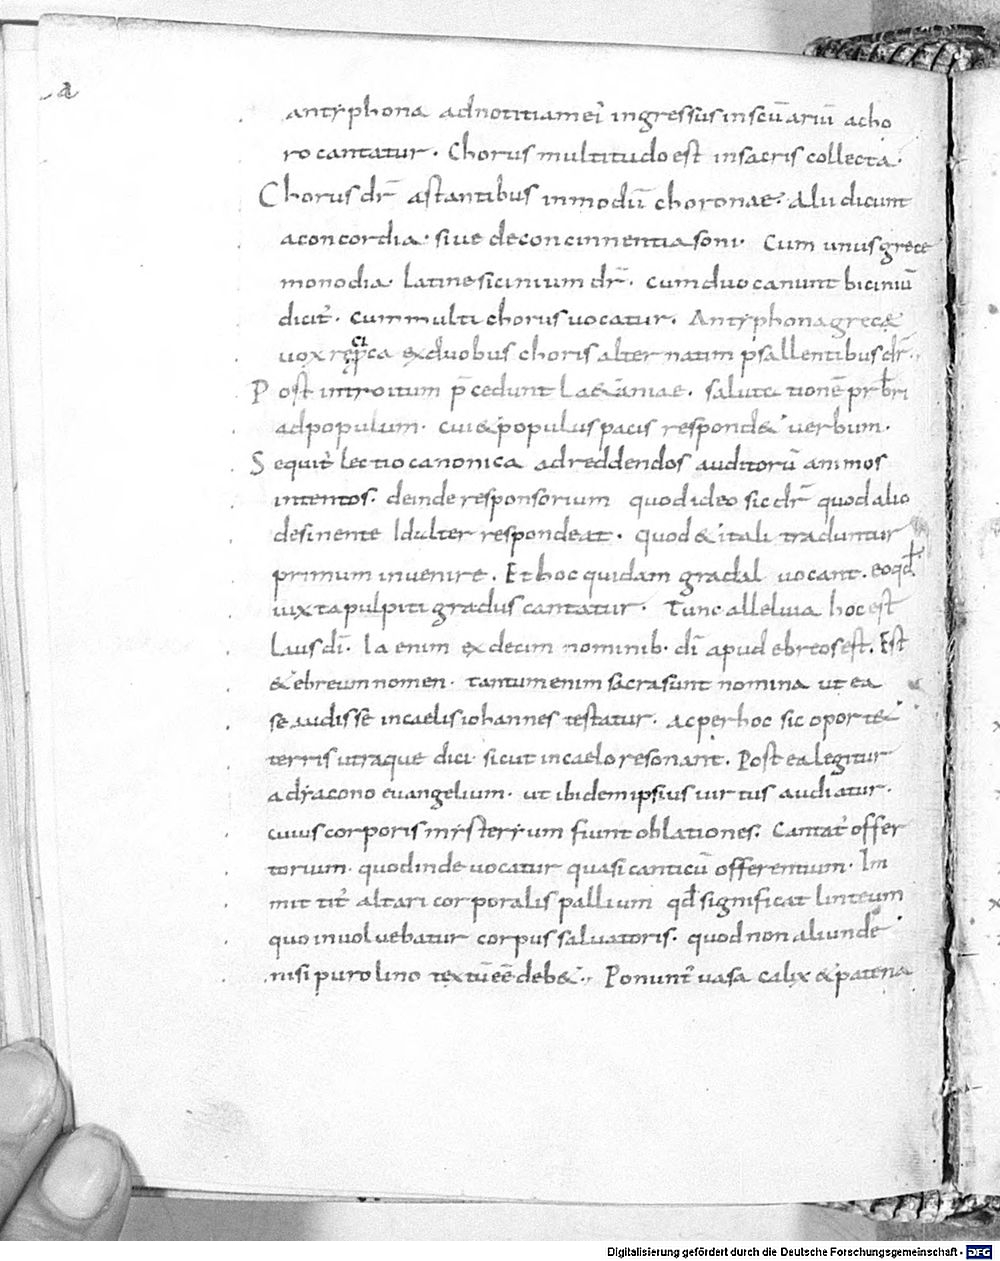 antyphona adnotitiam ei ingressus in scuariũ acho
ro cantatur. Chorus multitudo est insacris collecta.
Chorus dr̃ astantibus inmodũ choronae. Alii dicunt
aconcordia. siue deconcinnentia soni. Cum unus grece
monodia. latine sicinium dr̃. cum duo canunt biciniũ
dicit̃. cum multi chorus uocatur. Antyphona grecę
uox ex duobus choris alternatim psallentibus dr̃.
Post introitum p̄cedunt laetaniae. salutationẽ prb̃ri
adpopulum. cui & populus pacis respond& uerbum.
Sequit̃ lectio canonica adreddendos auditorũ animos
intentos. deinde responsorium quod ideo sic dr̃ quod alio
desinente id alter respondeat. quod & itali traduntur
primum inuenire. Et hoc quidam gradal uocant. eo qđ
iuxta pulpiti gradus cantatur. Tunc alleluia hoc est
Laus dĩ. Ia enim ex decim nominib. dĩ apud ebreos est. Est
& ebreum nomen. tantum enim sacra sunt nomina ut ea
se audisse incaelis iohannes testatur. ac per hoc sic oport&
terris utraque dici. sicut incaelo resonant. Post ea legitur
adyacono euangelium. ut ibidem ipsius uirtus audiatur.
cuius corporis mysterium fiunt oblationes. Cantat̃ offer
torium. quod inde uocatur quasi canticũ offerentium. Im
mittit̃ altari corporalis pallium qđ significat linteum
quo inuoluebatur corpus saluatoris. quod non aliunde
nisi puro lino textũ eẽ deb&. Ponunt̃ uasa calix & patena
Digitalisierung gefördert durch die Deutsche Forschungsgemeinschaft - DFG